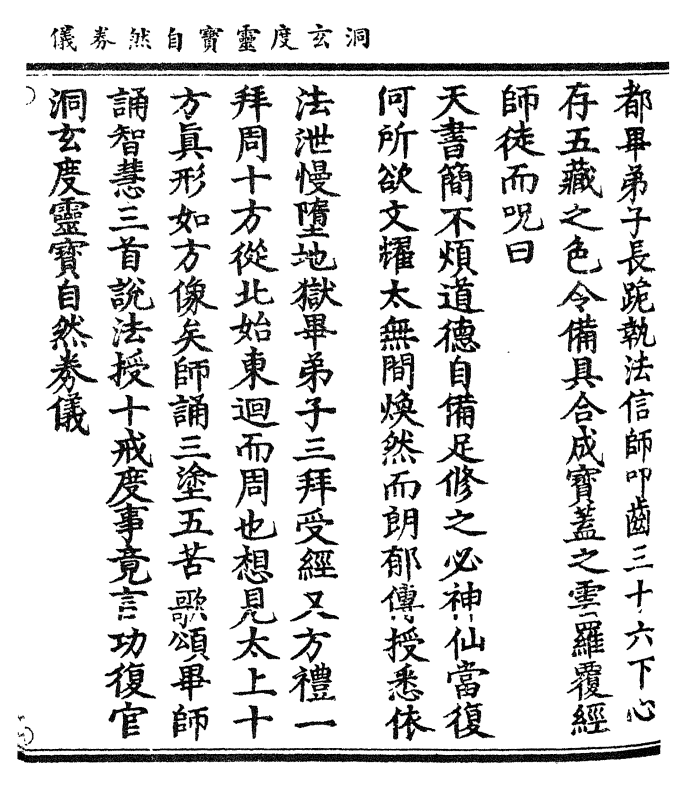 洞玄度靈寶自然券儀
都畢弟子長跪執法信師叩齒三十六下心
存五藏之色令備具合成寶蓋之雲羅覆經
師徒而呪曰
天書簡不煩道德自備足修之必神仙當復
何所欲文耀太無間煥然而朗郁傳授悉依
法泄慢墮地獄畢弟子三拜受經又方禮一
拜周十方從北始東迴而周也想見太上十
方眞形如方像矣師誦三塗五苦歌頌畢師
誦智慧三首說法授十戒度事竟言功復官
洞玄度靈寶自然券儀